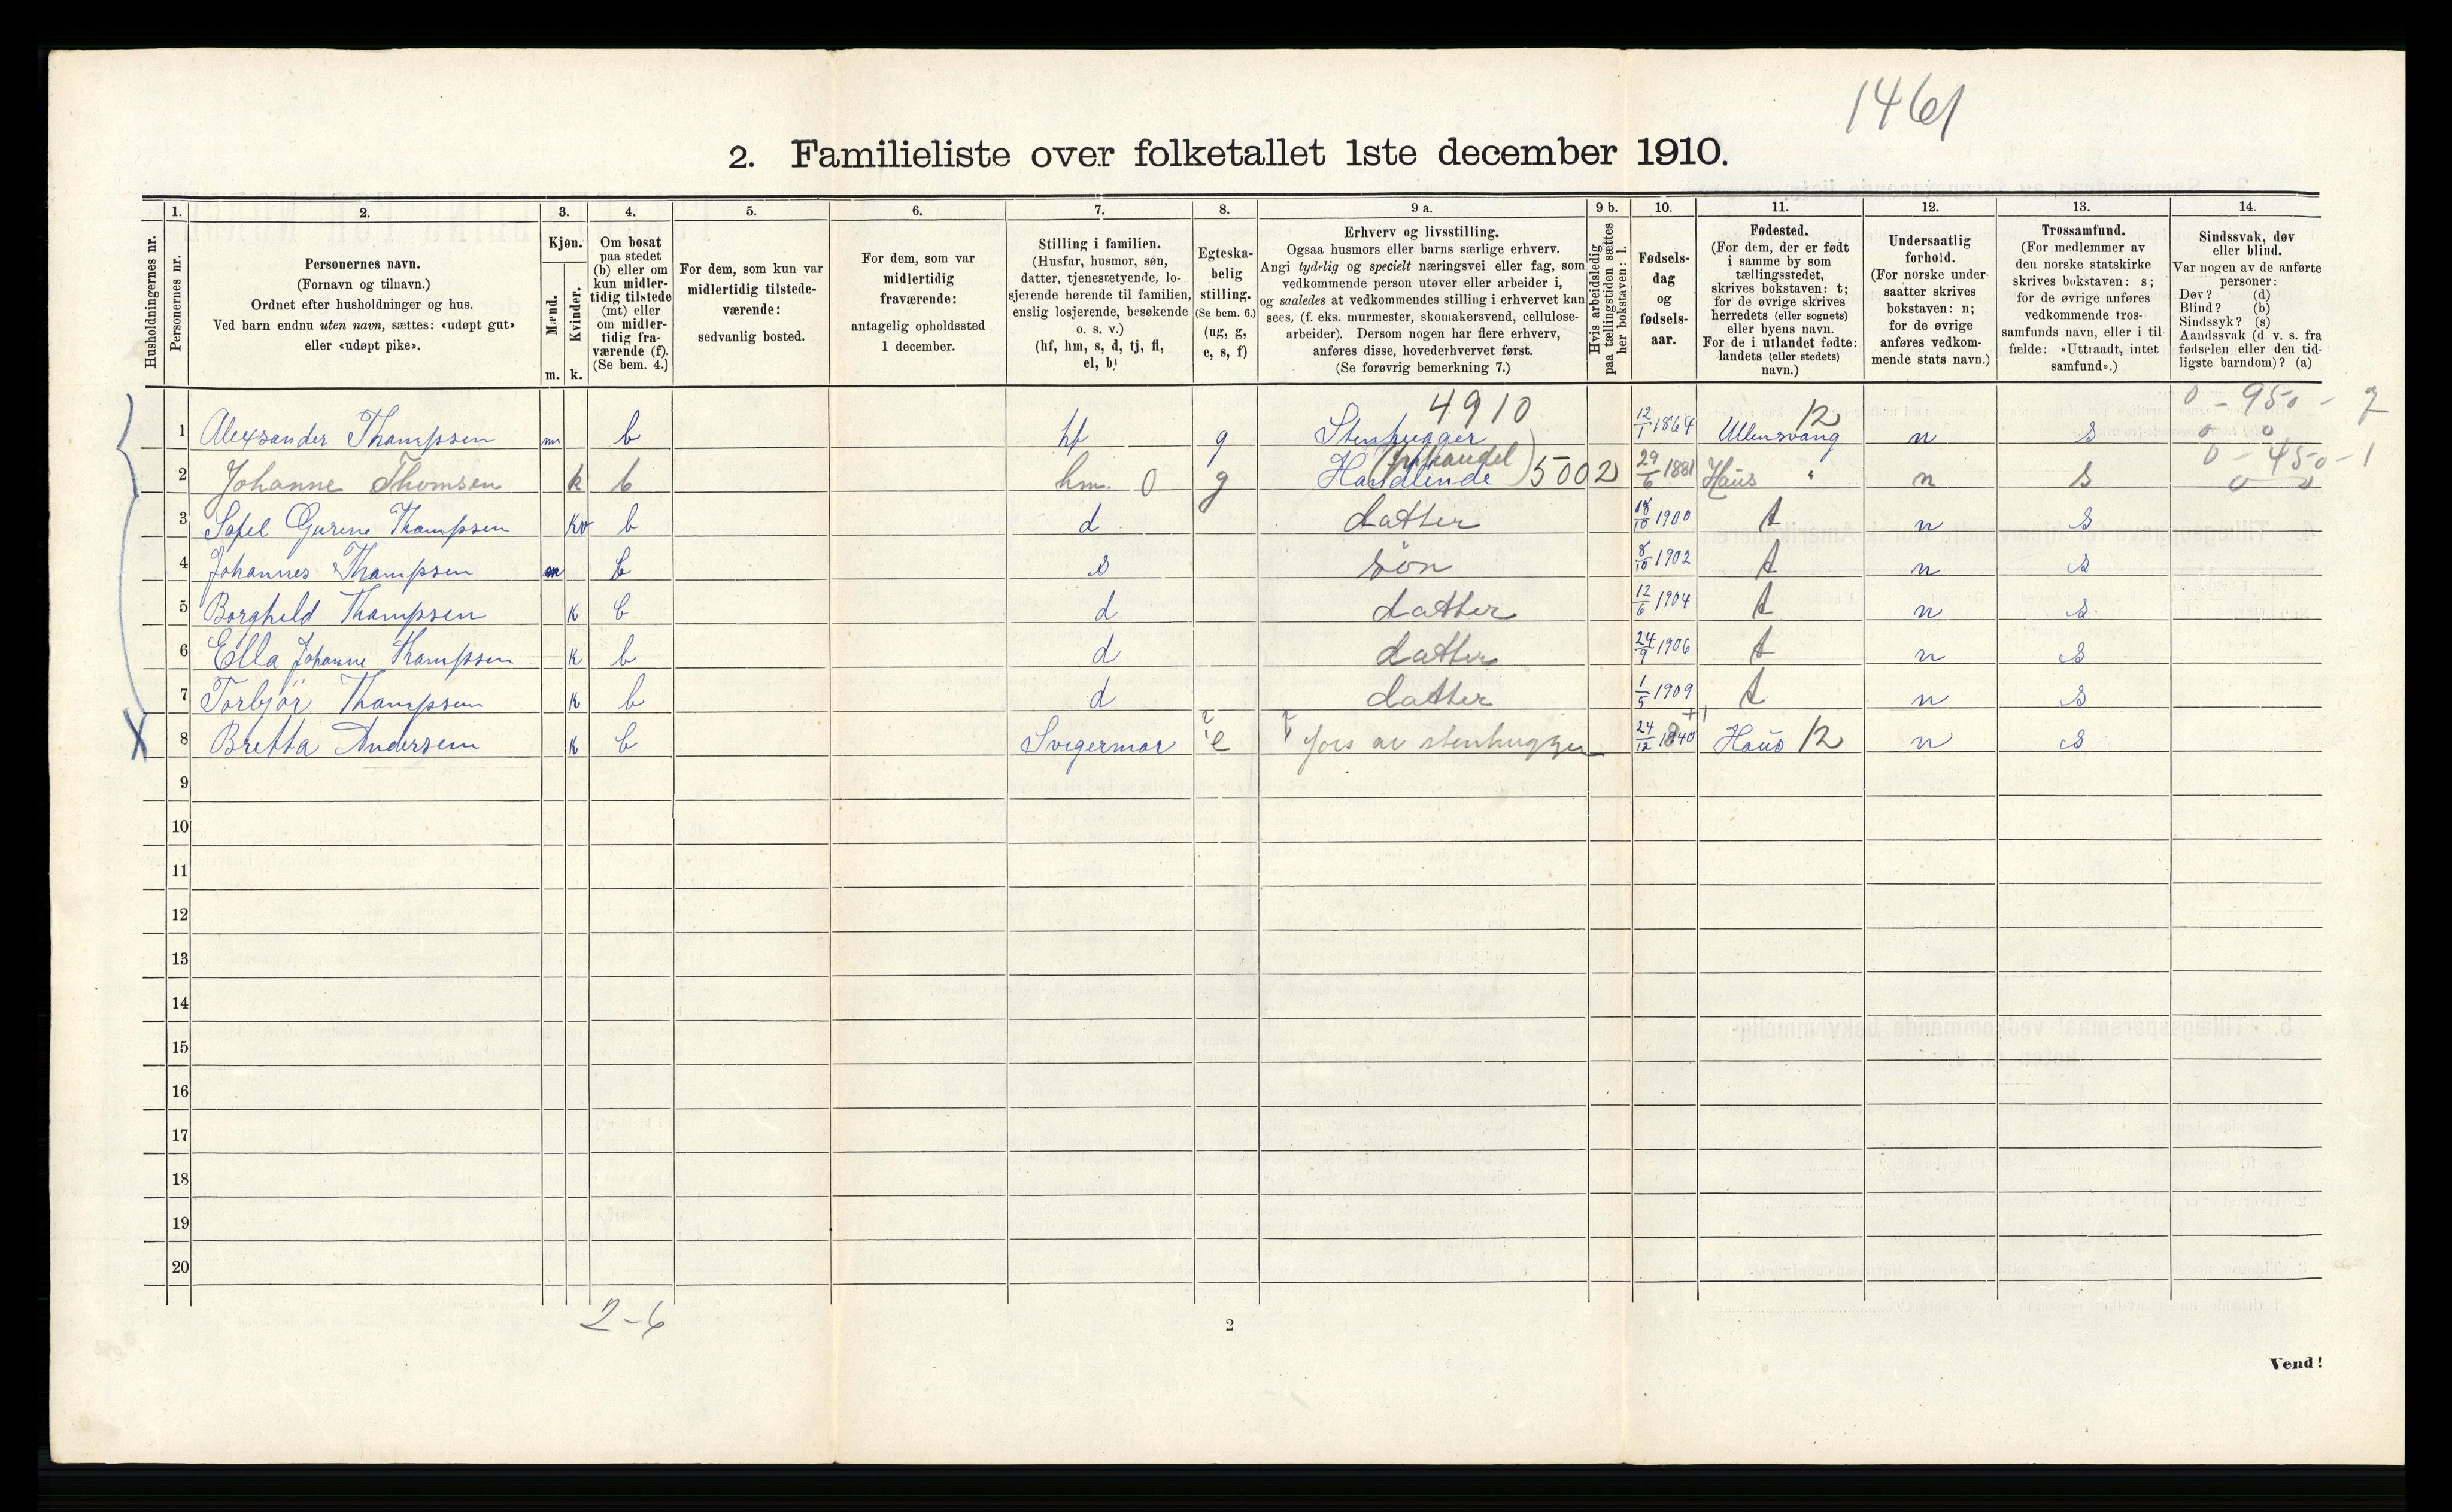 1461
2. Familieliste over folketallet 1ste december 1910.
1. 2. 3. 4. 5. 6. 7. 8. 9 a. 9 b. 10. 11. 12. 13. 14.
Husholdningernes nr.
Personernes nr.
Personernes navn.
(Fornavn og tilnavn.)
Ordnet efter husholdninger og hus.
Ved barn endnu uten navn, sættes: «udøpt gut»
eller «udøpt pike».
Kjøn.
Mænd.
Kvinder.
m. k.
Om bosat
paa stedet
(b) eller om
kun midler-
tidig tilstede
(mt) eller
om midler-
tidig fra-
værende (f).
(Se bem. 4.)
For dem, som kun var
midlertidig tilstede-
værende:
sedvanlig bosted.
For dem, som var
midlertidig
fraværende:
antagelig opholdssted
1 december.
Stilling i familien.
(Husfar, husmor, søn,
datter, tjenestetyende, lo-
sjerende hørende til familien,
enslig losjerende, besøkende
o. s. v.)
(hf, hm, s, d, tj, fl,
el, b)
Egteska-
belig
stilling.
(Se bem. 6.)
(ug, g,
e, s, f)
Erhverv og livsstilling.
Ogsaa husmors eller barns særlige erhverv.
Angi tydelig og specielt næringsvei eller fag, som
vedkommende person utøver eller arbeider i,
og saaledes at vedkommendes stilling i erhvervet kan
sees, (f. eks. murmester, skomakersvend, cellulose-
arbeider). Dersom nogen har flere erhverv,
anføres disse, hovederhvervet først.
(Se forøvrig bemerkning 7.)
Hvis arbeidsledig
paa tællingstiden sættes
her bokstaven: l.
Fødsels-
dag
og
fødsels-
aar.
Fødested.
(For dem, der er født
i samme by som
tællingsstedet,
skrives bokstaven: t;
for de øvrige skrives
herredets (eller sognets)
eller byens navn.
For de i utlandet fødte:
landets (eller stedets)
navn.)
Undersaatlig
forhold.
(For norske under-
saatter skrives
bokstaven: n;
for de øvrige
anføres vedkom-
mende stats navn.)
Trossamfund.
(For medlemmer av
den norske statskirke
skrives bokstaven: s;
for de øvrige anføres
vedkommende tros-
samfunds navn, eller i til-
fælde: «Uttraadt, intet
samfund».)
Sindssvak, døv
eller blind.
Var nogen av de anførte
personer:
Døv? (d)
Blind? (b)
Sindssyk? (s)
Aandssvak (d. v. s. fra
fødselen eller den tid-
ligste barndom)? (a)
4910 12 0 - 950 - 2
1 Alexsander Thampsen m b hf g Stenhugger 12/1 1864 Ullensvang n s 0 0
0 - 450 - 1
2 Johanne Thomsen k b hm. 0 g Handlende 5002 29/6 1881 Haus " n s
3 Sofel Gurine Thampsen Kv b d datter 18/10 1900 t n s
4 Johannes Thampsen m b s søn 8/10 1902 t n s
5 Borghild Thampsen K b d datter 12/6 1904 t n s
6 Ella Johanne Thampsen K b d datter 24/9 1906 t n s
7 Torbjør Thampsen K b d datter 1/5 1909 t n s
X 8 Britta Andersen K b Svigermor e fors av stenhugger 24/12 1840 Haus 12 n s
9
10
11
12
13
14
15
16
17
18
19
20
2-6
2
Vend!